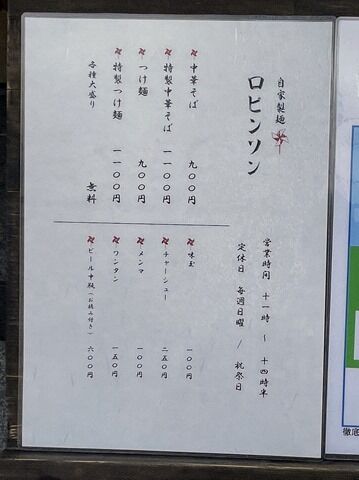 自家製麺
ロビンソン
営業時間 十一時 〜 十四時半
定休日 毎週日曜 / 祝祭日
中華そば 九〇〇円
特製中華そば 一一〇〇円
つけ麺 九〇〇円
特製つけ麺 一一〇〇円
各種大盛り 無料
味玉 一〇〇円
チャーシュー 二五〇円
メンマ 一〇〇円
ワンタン 一五〇円
ビール中瓶(お摘み付き) 六〇〇円
徹底